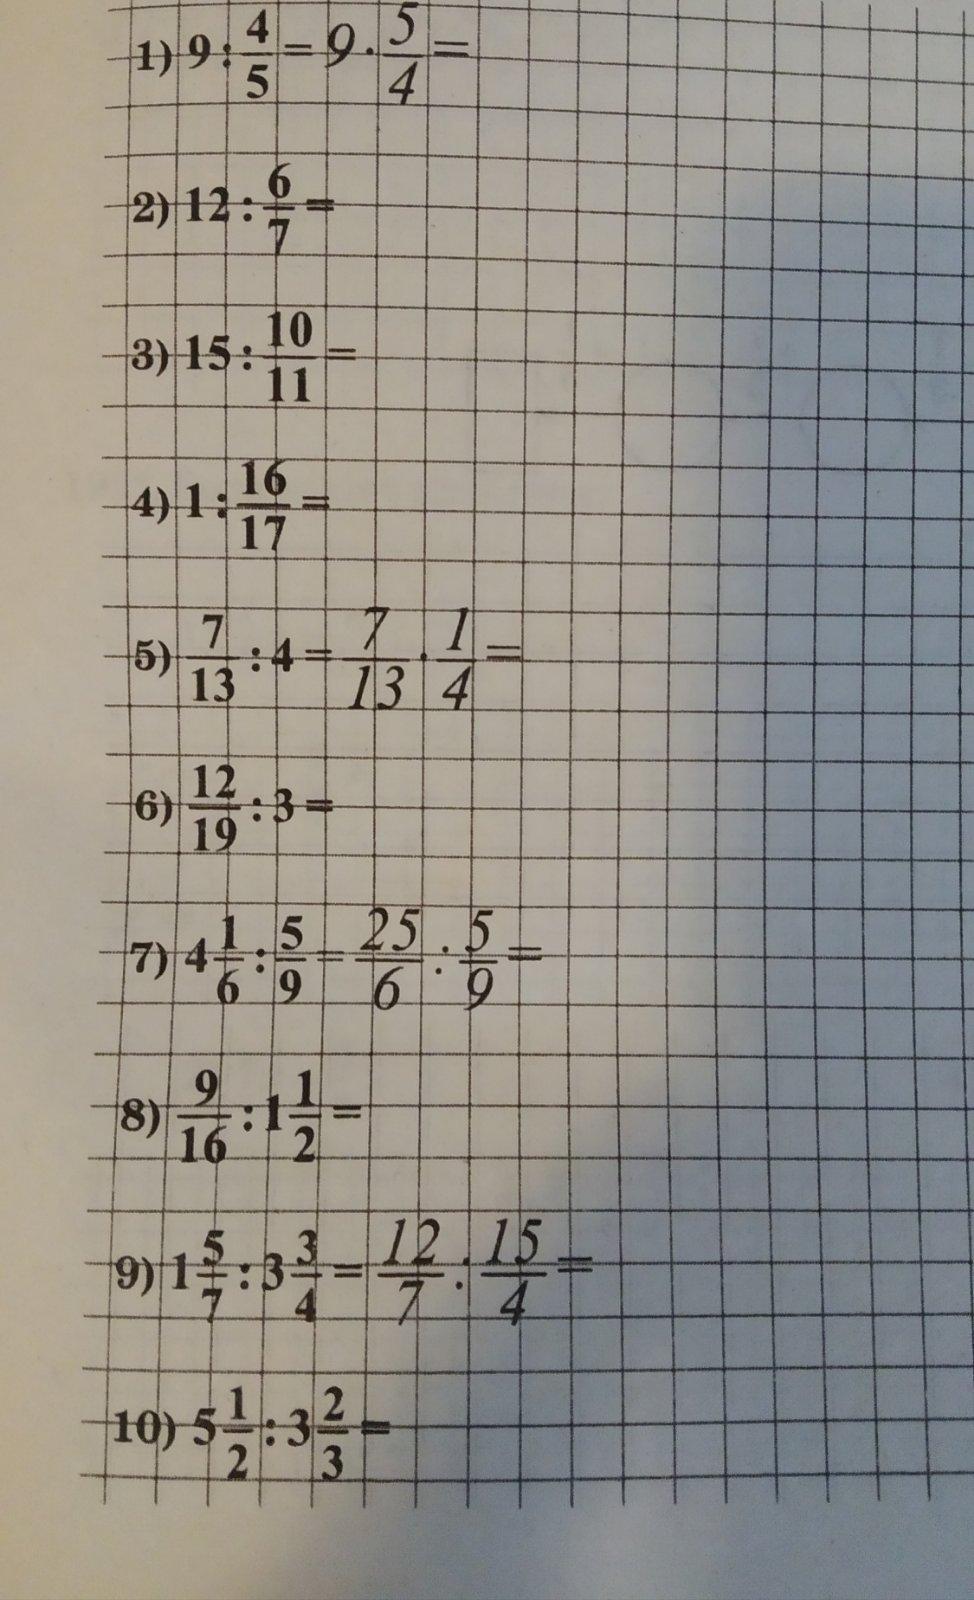 1) 9 : 4/5 = 9 · 5/4 =
2) 12 : 6/7 =
3) 15 : 10/11 =
4) 1 : 16/17 =
5) 7/13 : 4 = 7/13 · 1/4 =
6) 12/19 : 3 =
7) 4 1/6 : 5/9 = 25/6 : 5/9 =
8) 9/16 : 1 1/2 =
9) 1 5/7 : 3 3/4 = 12/7 : 15/4 =
10) 5 1/2 : 3 2/3 =